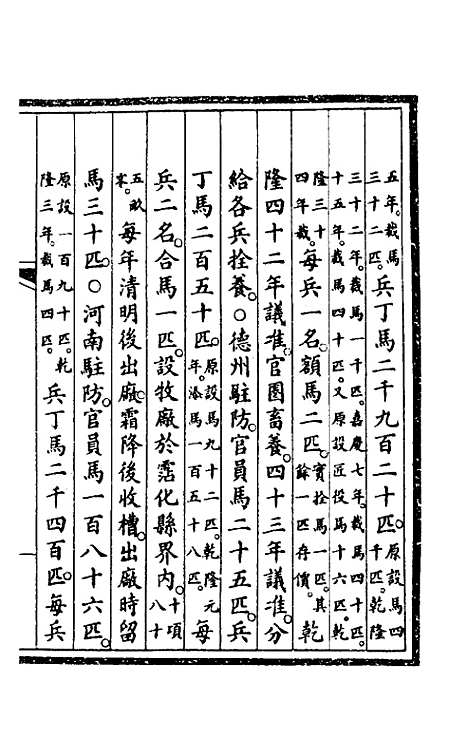 五年。裁馬三十二匹。兵丁馬二千九百二十匹。原設馬四千匹。乾隆
三十二年。裁馬一千匹。嘉慶七年。裁馬四十匹。十五年。裁馬四十匹。又原設匠役馬十六匹。乾
隆三十四年裁。每兵一名。額馬二匹。實拴馬一匹。其餘一匹存價。乾
隆四十二年議准。官圈畜養。四十三年議准。分
給各兵拴養。○德州駐防。官員馬二十五匹。兵
丁馬二百五十匹。原設馬九十二匹。乾隆元年。添馬一百五十八匹。每
兵二名。合馬一匹。設牧廠於霑化縣界內。十頃八十
五畝零。每年清明後出廠。霜降後收槽。出廠時留
馬三十匹。○河南駐防。官員馬一百八十六匹。
原設一百九十匹。乾隆三年。裁馬四匹。兵丁馬二千四百匹。每兵